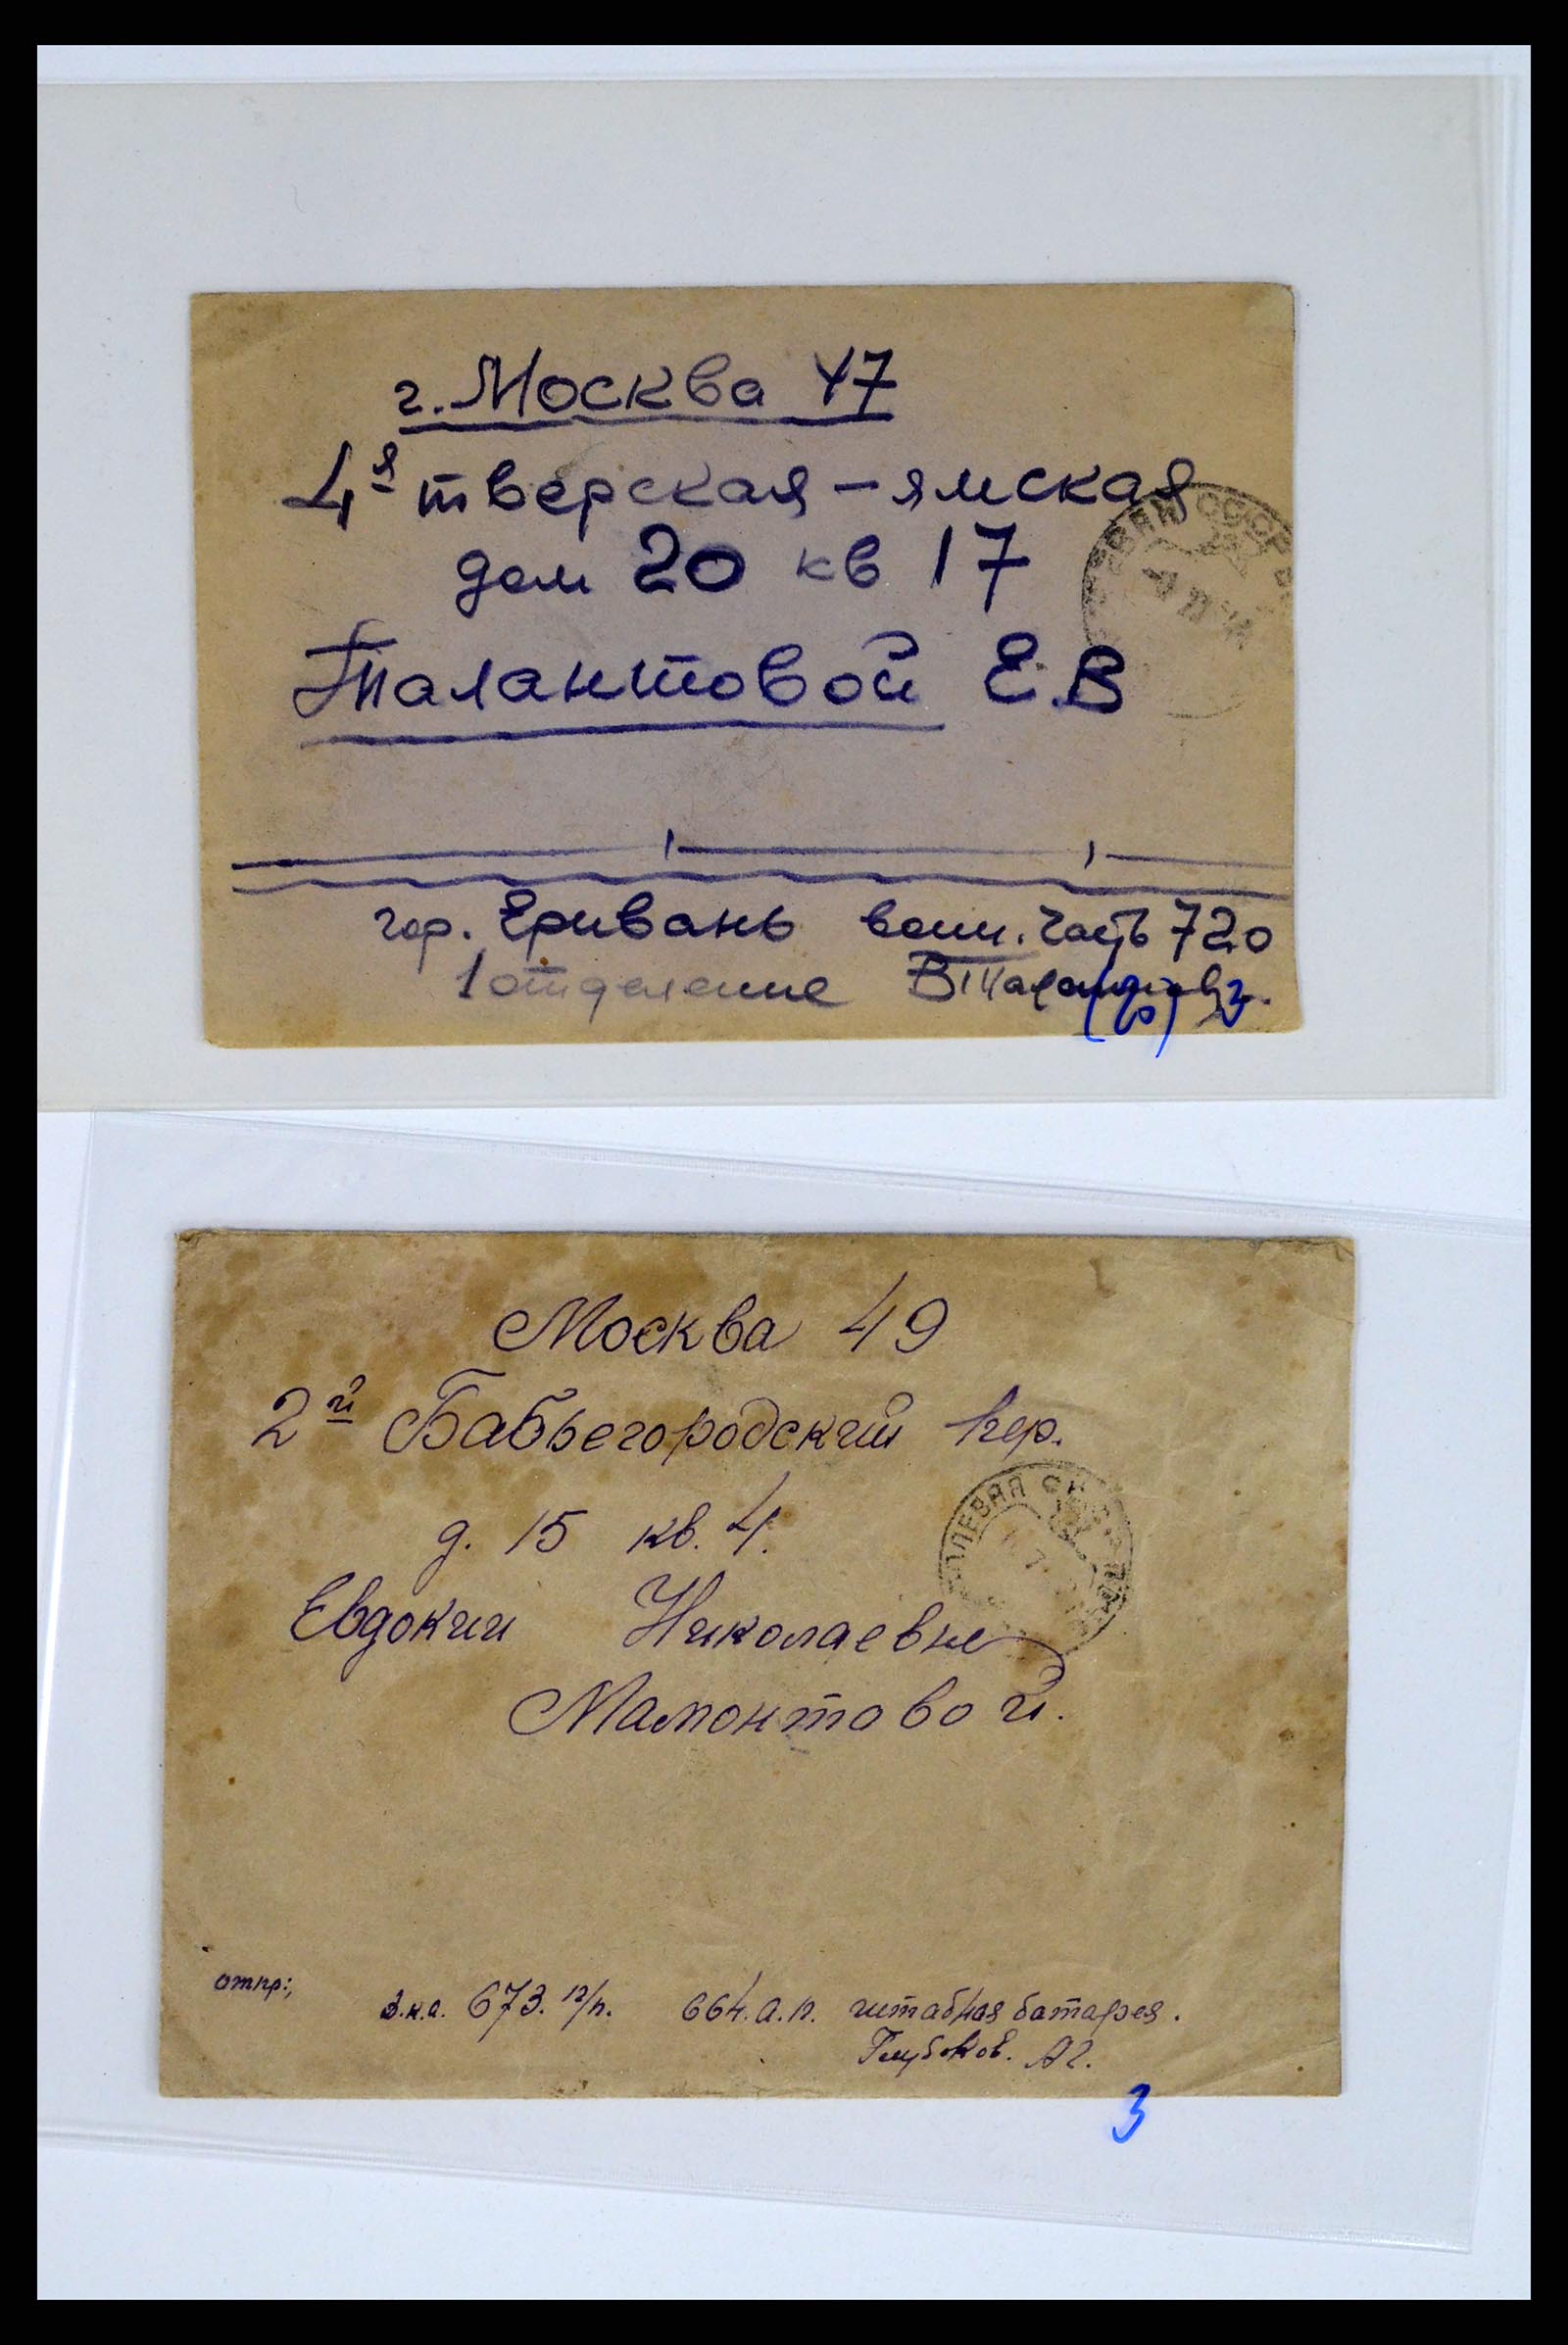 г. Москва 47
4я тверская - ямская
дом 20 кв 17
Талантовой Е.В
гор. Ериванъ воин. часть 720
1 отделение В Талантов
3
Москва 49
2й Бабьегородский пер.
д. 15 кв. 4.
ПОЛЕВАЯ
Евдокии Николаевне
Мамонтовой.
отпр:,
673. 12/п. 664. а. п. штабная батарея.
Глубоков. А Г.
3